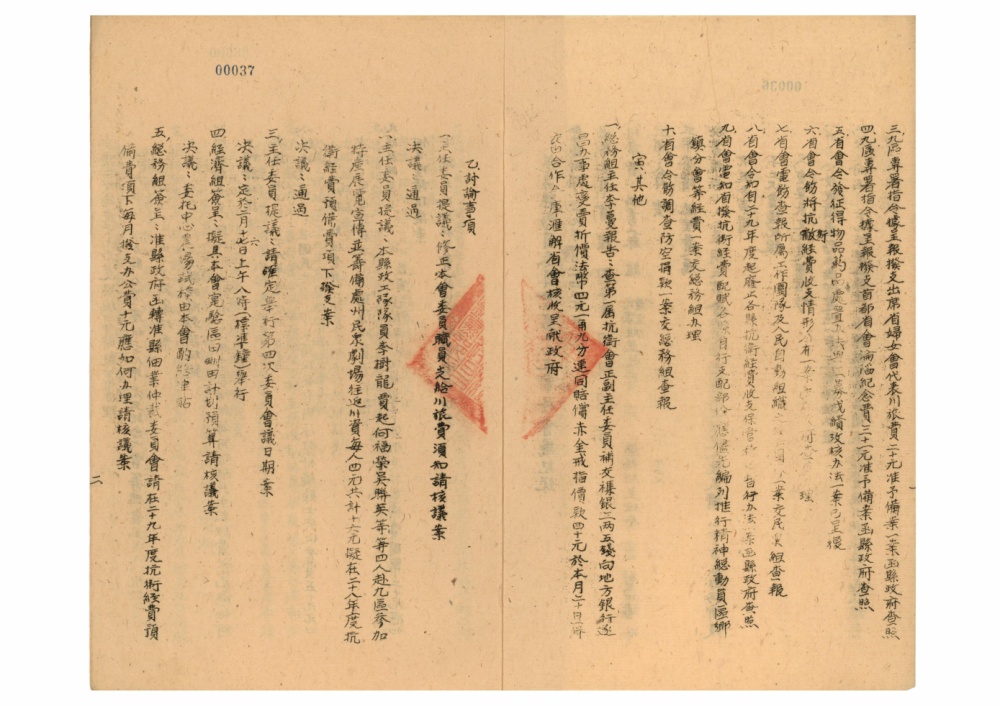 三、九區專署指令據呈報撥支出席省婦女會代表川旅費二十元准予備案一案函縣政府查照
四、九區專署指令據呈報撥支首都省會淪陷紀念費二十二元准予備案函縣政府查照
五、省會令發征得物品
績攷核办法一案已呈復
六、省會令飭將抗敵經費收支情形
七、省會電飭查報所屬工作團隊及人民自動組織
一案交民 組查報
八、省會令知自二十九年度起廢止各縣抗衛經費收支保管
办法一案函縣政府查照
九、省會電知省撥抗衛經費配賦各縣自行支配部
儘先編列推行精神總動員區鄉
鎮分會等經費一案交總務組办理
十、省會令飭調查防空捐款一案交總務組查報
寅、其他
一、總務組主任李蔓報告：查第一屆抗衛會正副主任委員補交襟銀二兩五錢向地方銀行逕
办事處变賣折價法幣四元一角九分連同賠償赤金戒指價款四十元於本月二十日
合作 庫滙解省會核收呈縣政府
00037
乙、討論事項
一、主任委員提議：修正本會委員職員支給川旅費須知請核議案
決議：通過
二、主任委員提議、本縣政工隊隊員李樹龍賈起何福榮吳勝英等四人赴九區參加
特產展覽宣傳並籌備處州民眾劇場往返川資每人四元共計十六元擬在二十八年度抗
衛經費預備費項下撥支案
決議：通過
三、主任委員提議：請確定舉行第四次委員會議日期案
決議：定於二月十六日上午八時（標準鐘）舉行
四、經濟組簽呈：擬具本會實驗區田畊田計劃預算請核議案
決議：委托中心農場試種由本會酌給津貼
五、總務組簽呈：准縣政府函轉准縣佃業仲裁委員會請在二十九年度抗衛經費預
備費項下每月撥支办公費十元應如何办理請核議案
二